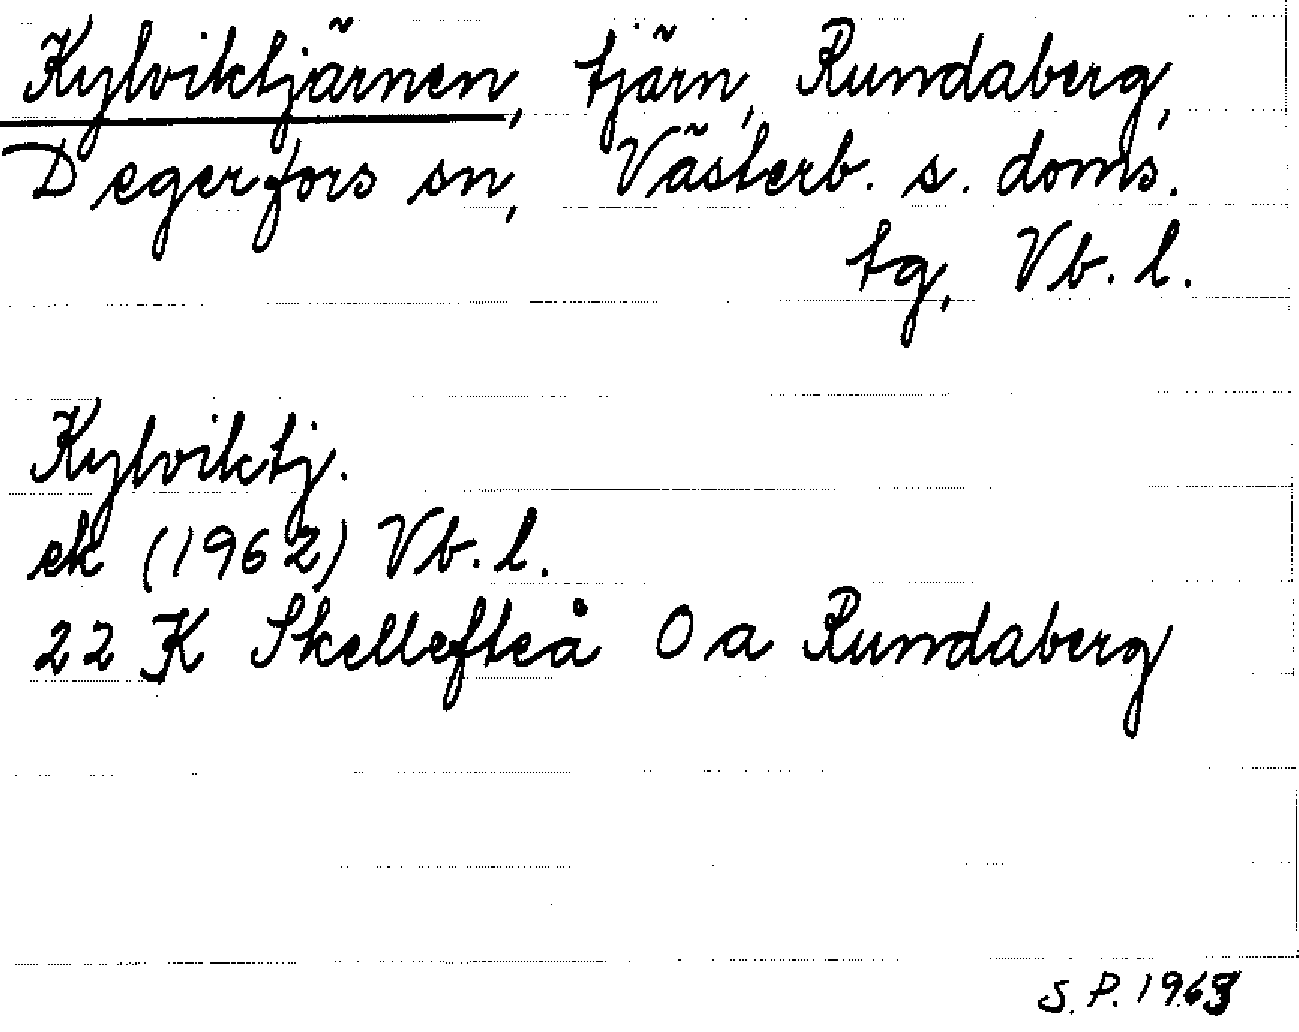 Kylviktjärnen, tjärn, Rundaberg,
Degerfors sn, Västerb. s. doms.
tg, Vb. l.
Kylviktj.
ek (1962) Vb. l.
22 K Skellefteå 0 a Rundaberg
S. P. 1963